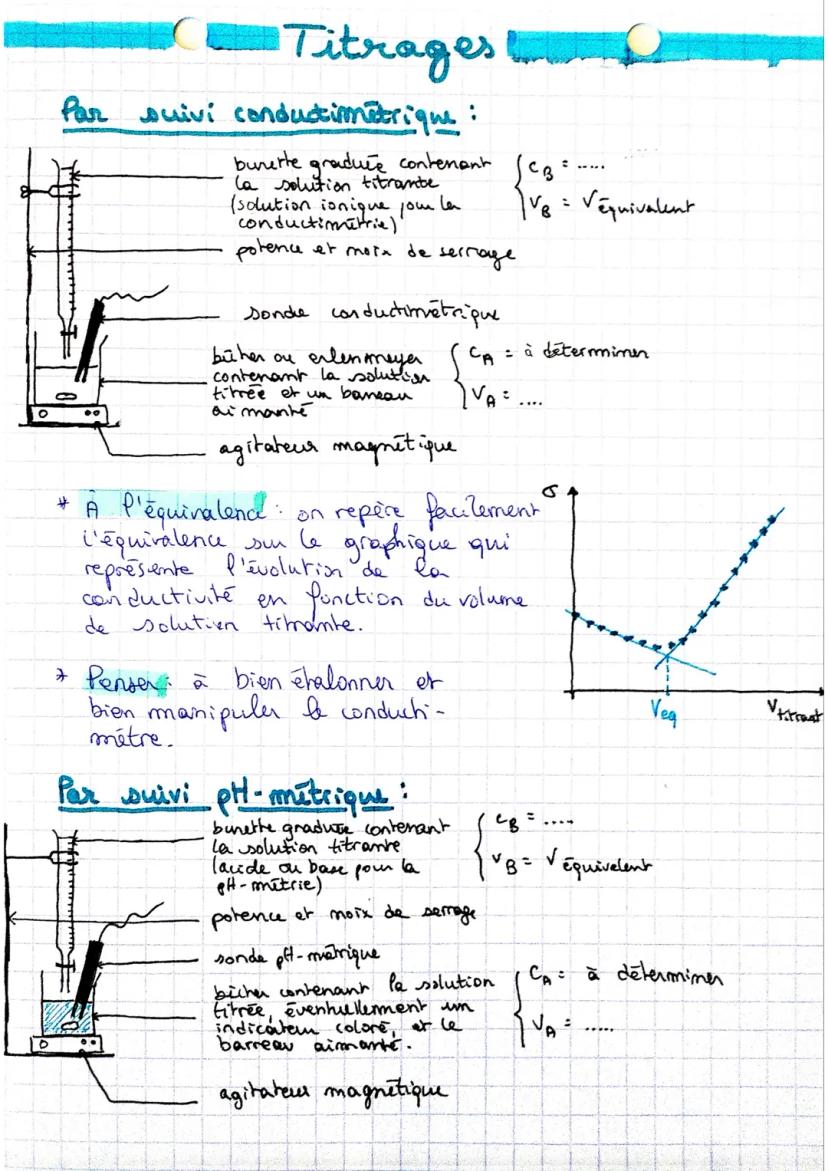 Titrages
Par suivi conductimétrique :
burette graduée contenant
la solution titrante
(solution ionique pour la
conductimétrie)
{ CB = .....
VB = Véquivalent
potence et noix de serrage
sonde conductimétrique
bécher ou erlenmeyer
contenant la solution
titrée et un barreau
aimanté
{ CA = à déterminer
VA = ....
agitateur magnétique
* À l'équivalence : on repère facilement
l'équivalence sur le graphique qui
représente l'évolution de la
conductivité en fonction du volume
de solution titrante.
σ
Veq
Vtitrant
* Penser : à bien étalonner et
bien manipuler le conducti-
mètre.
Par suivi pH-métrique :
burette graduée contenant
la solution titrante
(acide ou base pour la
pH-métrie)
{ CB = .....
VB = Véquivalent
potence et noix de serrage
sonde pH-métrique
bécher contenant la solution
titrée, éventuellement un
indicateur coloré, et le
barreau aimanté.
{ CA = à déterminer
VA = .....
agitateur magnétique